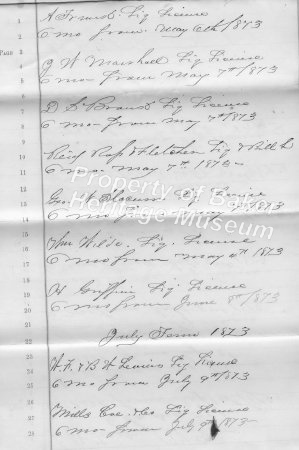 1
2 A Liq License
3 6 mo from May 6th/1873
4
PAGE 5 J W Marshall Liq License
6 6 mo from May 7th/1873
7
8 D S Liq License
9 6 mo from May 7th/1873
10
11 Reid Ross & Fletcher Liq & Bill L
12 6 mo May 7th 1873
13
14 Geo W Liq License
15 6 mo
16
17 Wm Wilde Liq. License
18 6 mo from May 1873
19
20 H Griffin Liq License
21 6 mo from June 8th/1873
22 July Term 1873
23
24 W. F. & B W Levens Liq License
25 6 mo from July 9th/1873
26
27 Mills Coe & Co Liq License
28 6 mo from July 9th/1873
Property of Baker
Heritage Museum